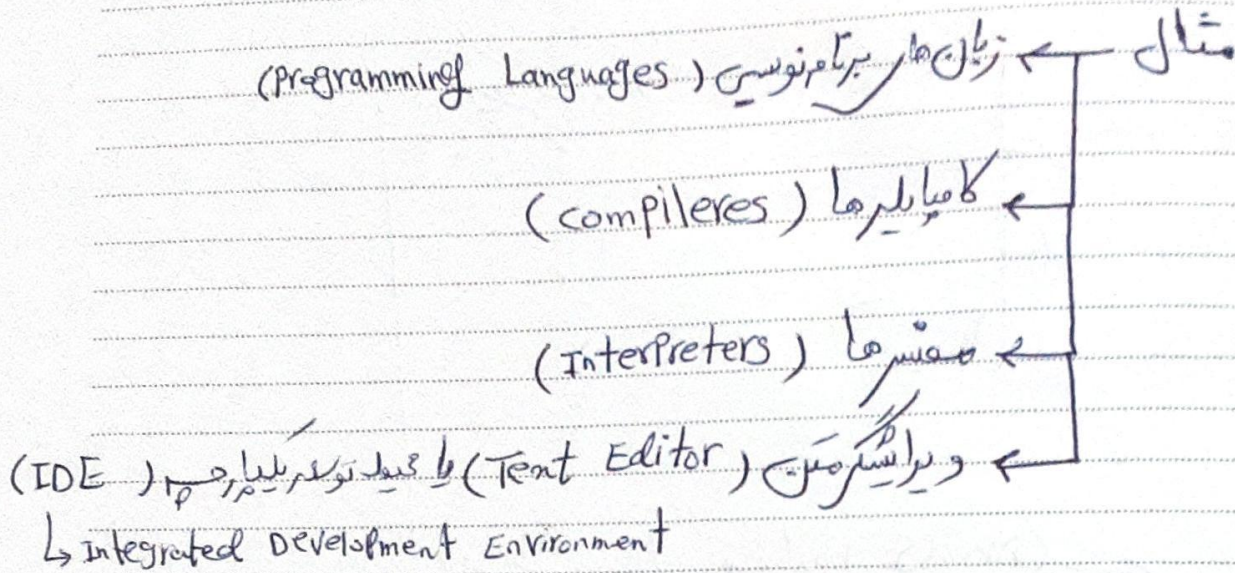 مثال ← زبان های برنامه نویسی (Programming Languages)
← کامپایلرها (compileres)
← مفسرها (Interpreters)
← ویرایشگر متن (Text Editor) یا محیط توسعه یکپارچه (IDE)
↳ Integrated Development Environment